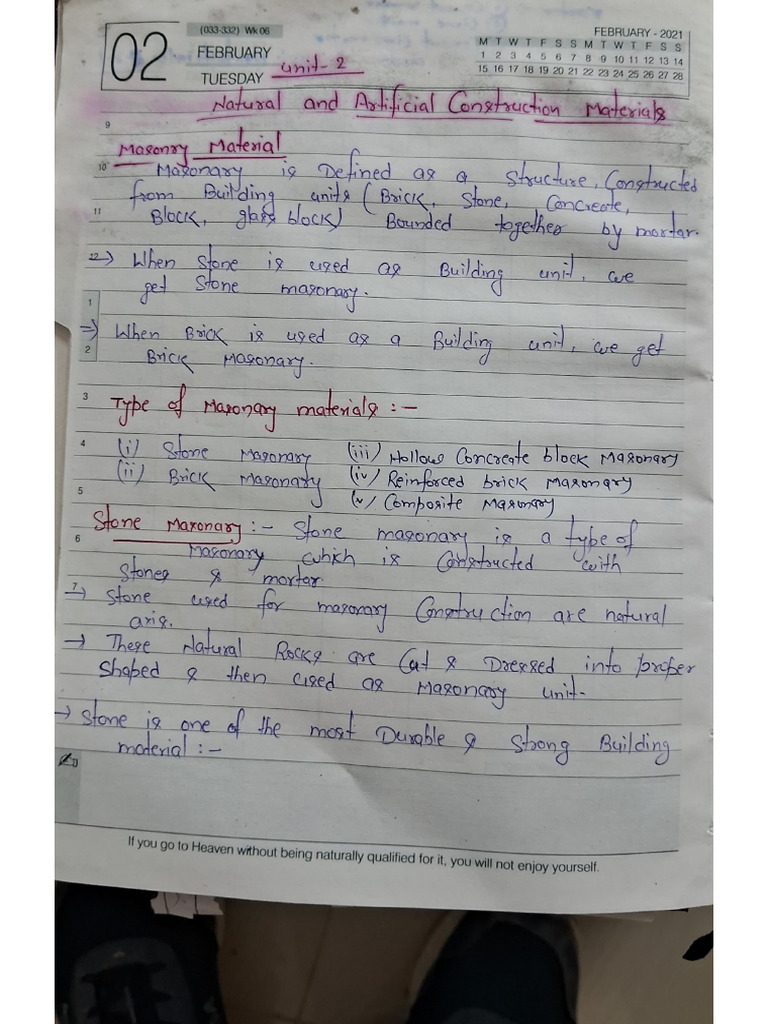 (033-332) Wk 06
02
FEBRUARY
TUESDAY unit-2
FEBRUARY - 2021
M T W T F S S M T W T F S S
1 2 3 4 5 6 7 8 9 10 11 12 13 14
15 16 17 18 19 20 21 22 23 24 25 26 27 28
Natural and Artificial Construction Materials
9
Masonry Material
10 Masonary is Defined as a Structure, Constructed
from Building units (Brick, Stone, Concreate,
11 Block, glass block) Bounded together by mortar.
12 → When Stone is used as Building unit, we
get Stone masonary.
1
⇒ When Brick is used as a Building unit, we get
2 Brick Masonary.
3 Type of Masonary materials :-
4 (i) Stone Masonary (iii) Hollow Concreate block Masonary
(ii) Brick Masonary (iv) Reinforced brick Masonary
5 (v) Composite Masonary
Stone Masonary :- Stone masonary is a type of
6 Masonary which is Constructed with
Stones & mortar.
7 → Stone used for masonary Construction are natural
axis.
→ These Natural Rocks are Cut & Dressed into proper
Shaped & then used as Masonary unit.
→ Stone is one of the most Durable & Strong Building
material :-
If you go to Heaven without being naturally qualified for it, you will not enjoy yourself.